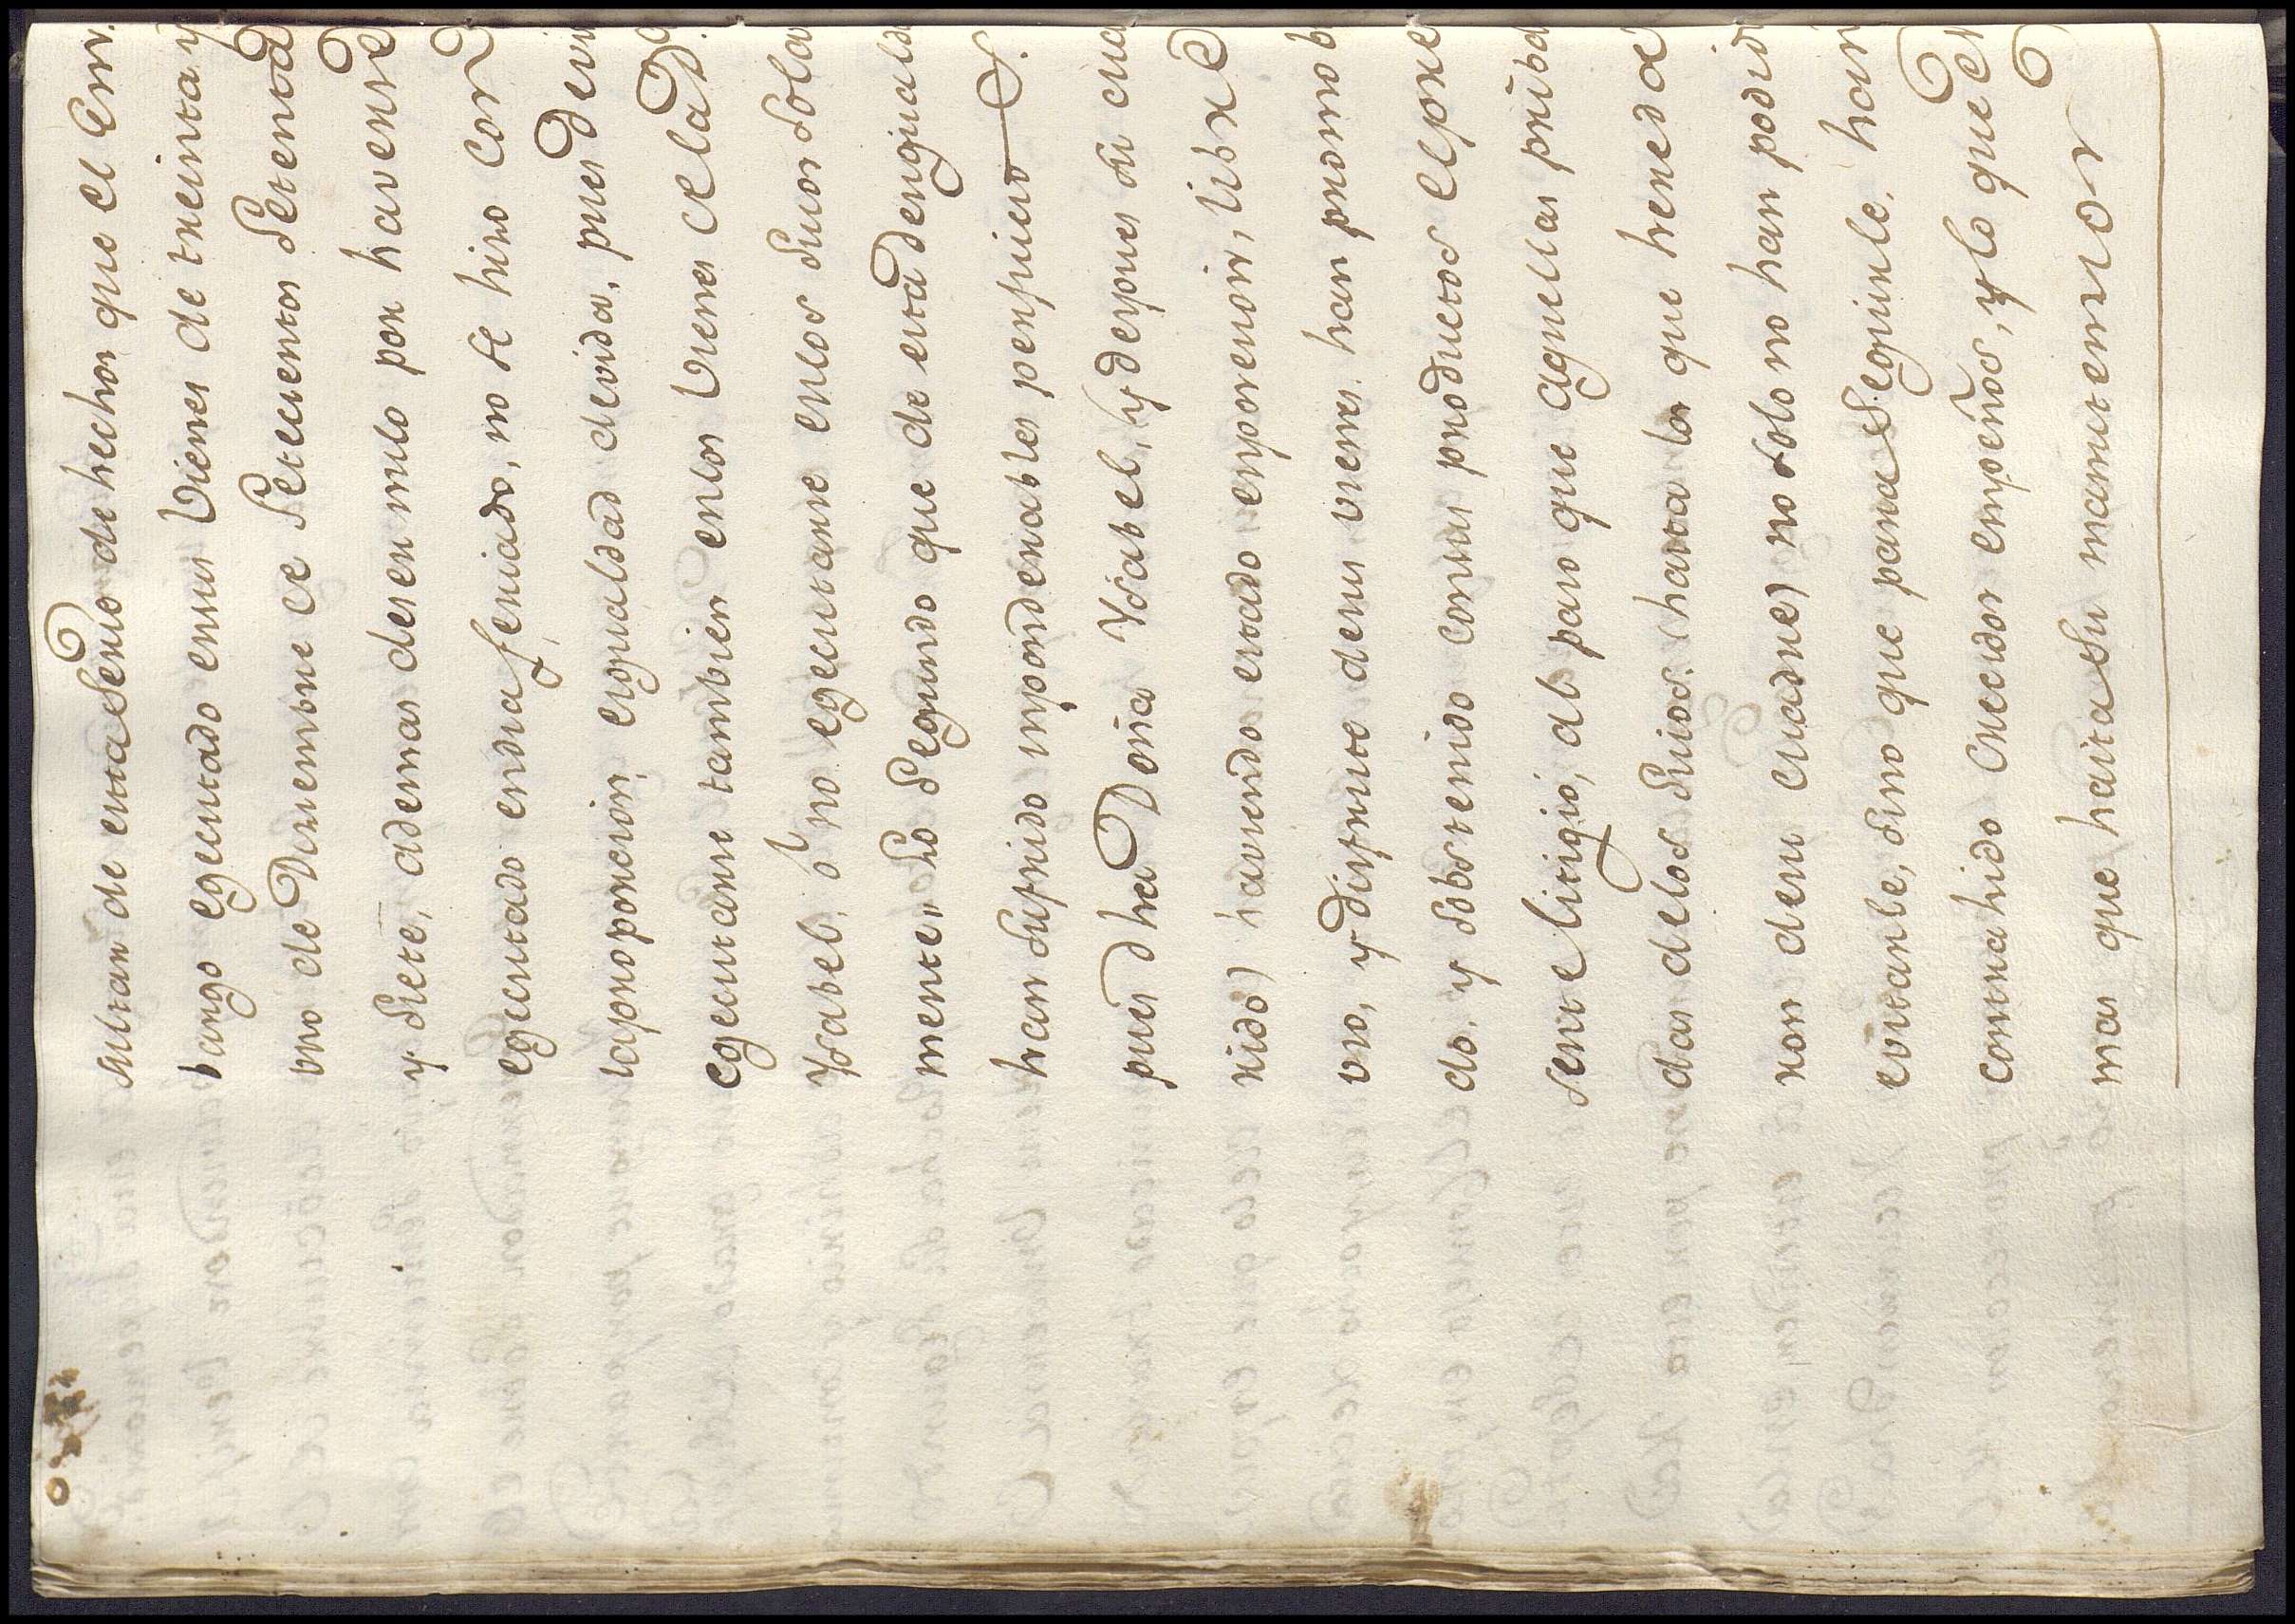 sultan de esta Serio de hechos que el Em
bargo egecutado en sus Vienes de treinta y
uno de Diziembre de Setecientos Setenta
y Siete, ademas de ser nulo por haverse
egecutado en dia feriado, no se hizo con
la proporcion, e igualdad devida, pues devio
egecutarse tambien en los Vienes de la D.a
Ysabel, ó no egecutarse en los Suios Sola
mente,, Lo Segundo que de esta desiguald
han Sufrido inponderables perjuicio &.
pues dha Doña Ysabel, (y despues su cua
rido) haviendo estado en posesion, libre
uso, y disfrute de sus vienes, han promob
do, y Sobstenido con sus productos el pre
sente litigio, al paso que aquellas priba
das de los Suios (hasta los que hereda
ron de su Madre) no solo no han podid
evitarle, Sino que para Seguirle, han
contrahido crecidos enpeños, y lo que es
mas que hasta Su manutension